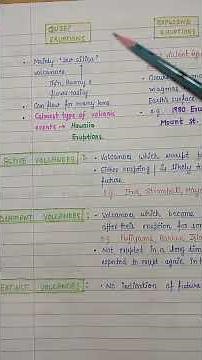 QUIET
ERUPTIONS
EXPLOSIVE
ERUPTIONS
• Mainly "low silica"
volcanoes.
Thin, Runny &
flows easily
• Can flow for many kms.
• Calmest type of volcanic
events → Hawaiin
Eruptions.
Earth's surface
e.g. 1980
Mount St.
ACTIVE VOLCANOES :
• Volcanoes which erupt
• Either erupting is likely to
future.
e.g. Etna, Stromboli, May
DORMANT VOLCANOES :
• Volcanoes which become
after their eruption for so
e.g. Fujiyama,
• Not erupted in a long time
expected to erupt again in
EXTINCT VOLCANOES :
• No indication of future